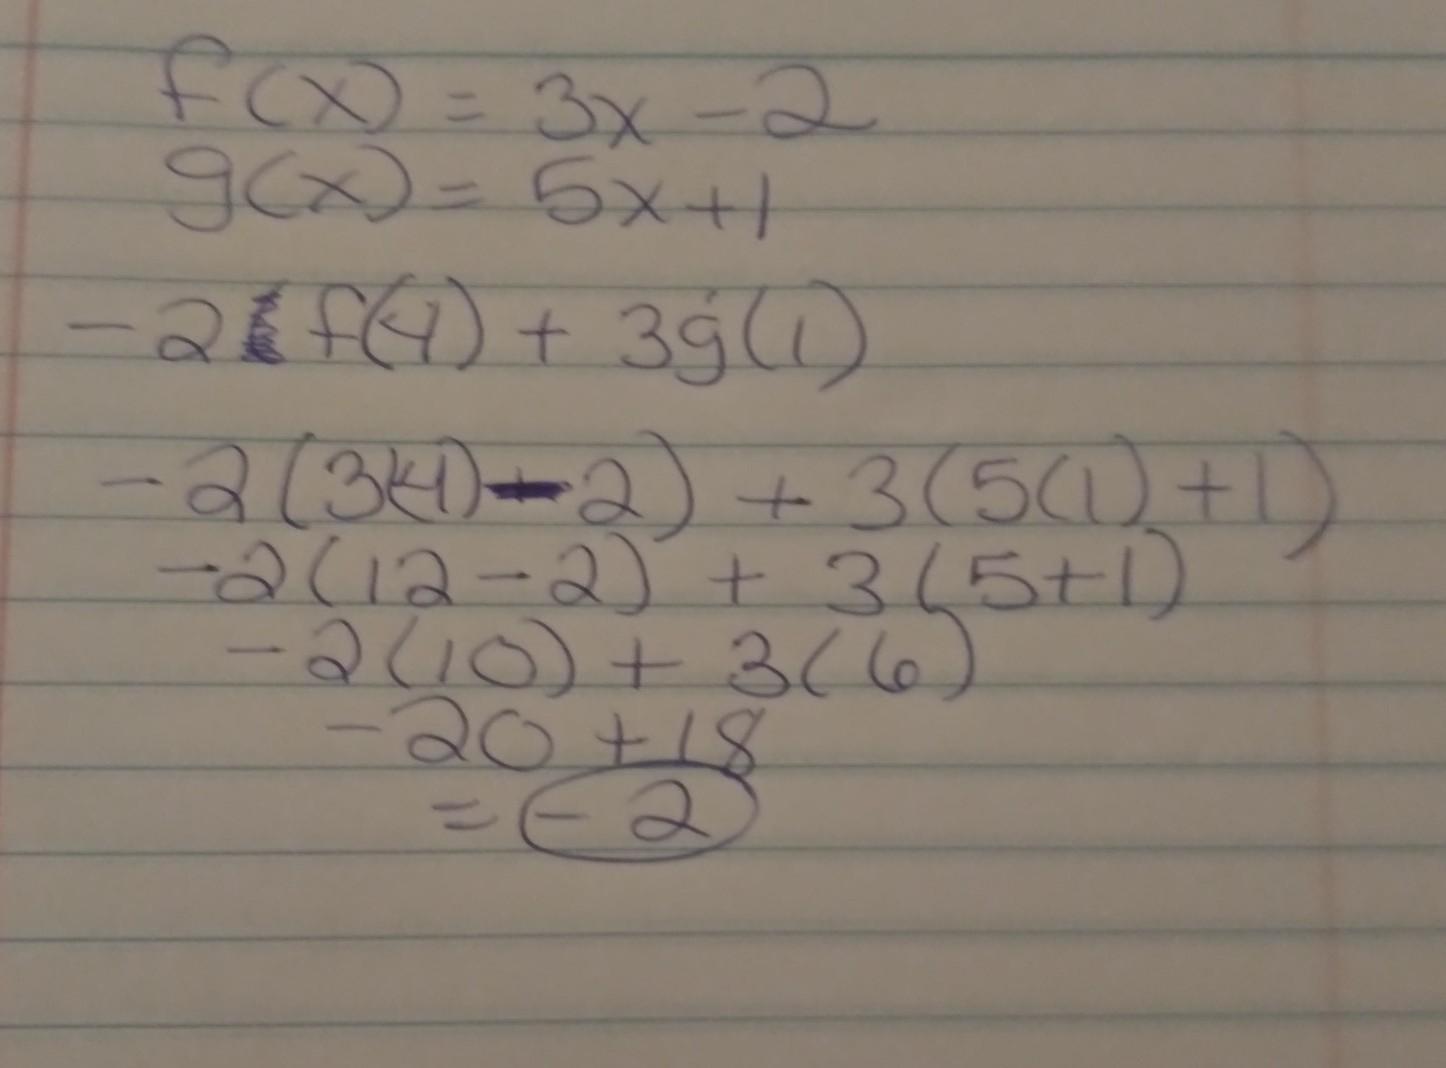 f(x) = 3x - 2
g(x) = 5x + 1
-2 f(4) + 3g(1)
-2(3(4) - 2) + 3(5(1) + 1)
-2(12 - 2) + 3(5 + 1)
-2(10) + 3(6)
-20 + 18
= -2